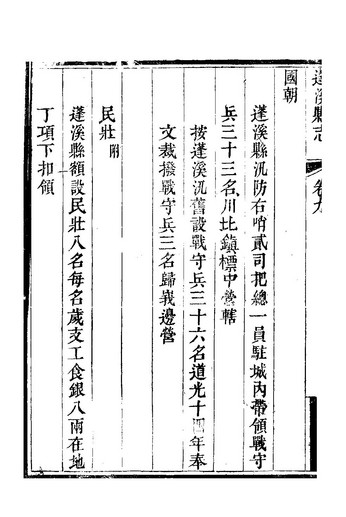 蓬溪縣志
卷九
國朝
蓬溪縣汛防右哨貳司把總一員駐城內帶領戰守
兵三十三名川北鎮標中營轄
按蓬溪汛舊設戰守兵三十六名道光十四年奉
文裁撥戰守兵三名歸峩邊營
民壯附
蓬溪縣額設民壯八名每名歲支工食銀八兩在地
丁項下扣領